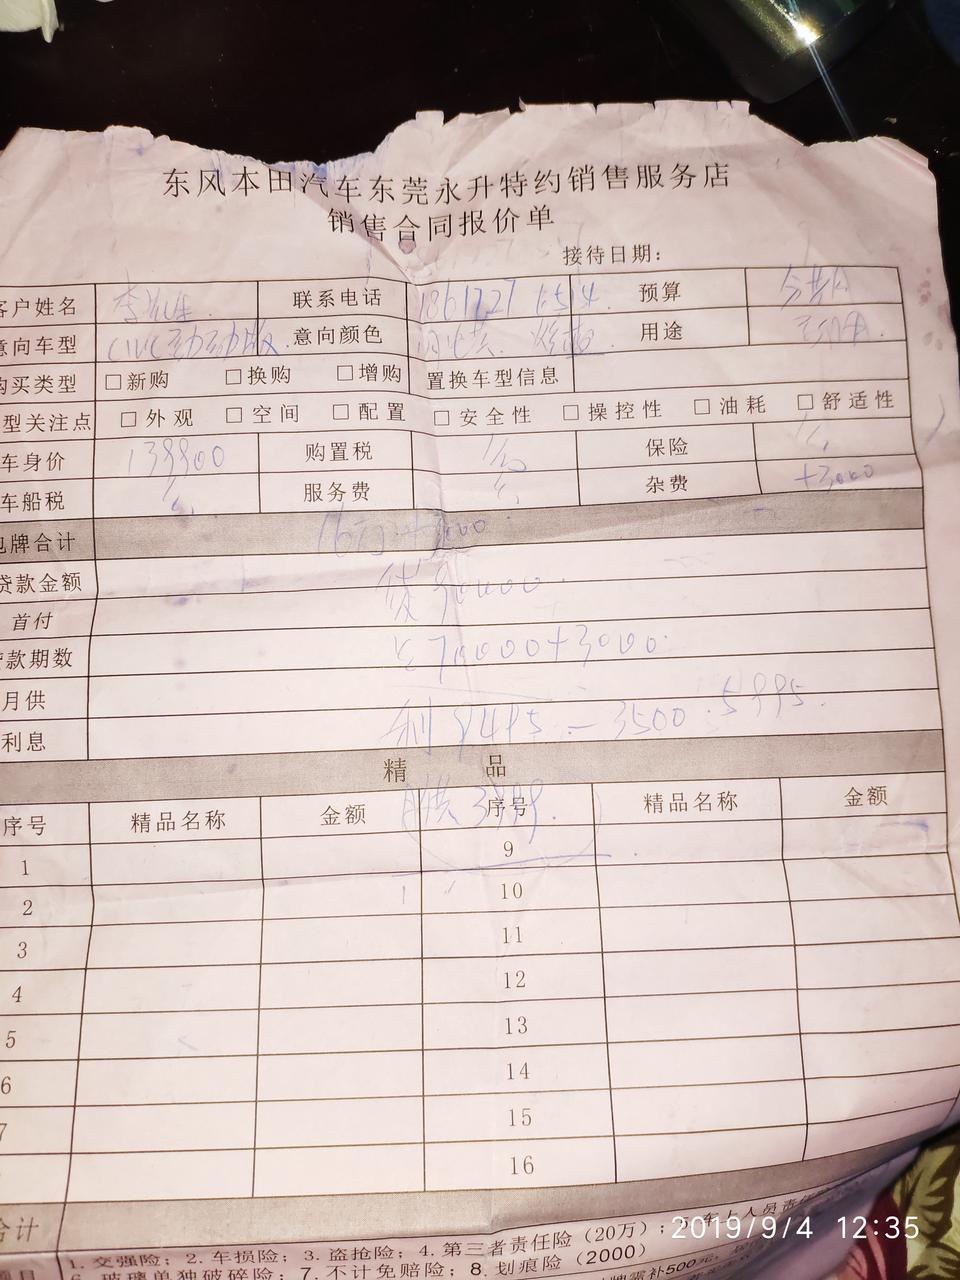 东风本田汽车东莞永升特约销售服务店
销售合同报价单
接待日期：
客户姓名 李先生 联系电话 预算
意向车型 CIVIC 劲动版 意向颜色 用途
购买类型 □新购 □换购 □增购 置换车型信息
型关注点 □外观 □空间 □配置 □安全性 □操控性 □油耗 □舒适性
车身价 139900 购置税 保险
车船税 服务费 杂费 +3000
包牌合计 16万+3000
贷款金额 贷90000
首付
贷款期数 70000+3000
月供
利息 利9495-3500 5995
精 品
序号 精品名称 金额 序号 精品名称 金额
月供
1 9
2 10
3 11
4 12
5 13
6 14
7 15
16
合计
1. 交强险；2. 车损险；3. 盗抢险；4. 第三者责任险（20万）；5. 车上人员责任
6. 玻璃单独破碎险；7. 不计免赔险；8. 划痕险（2000）
牌需补500元
2019/9/4 12:35